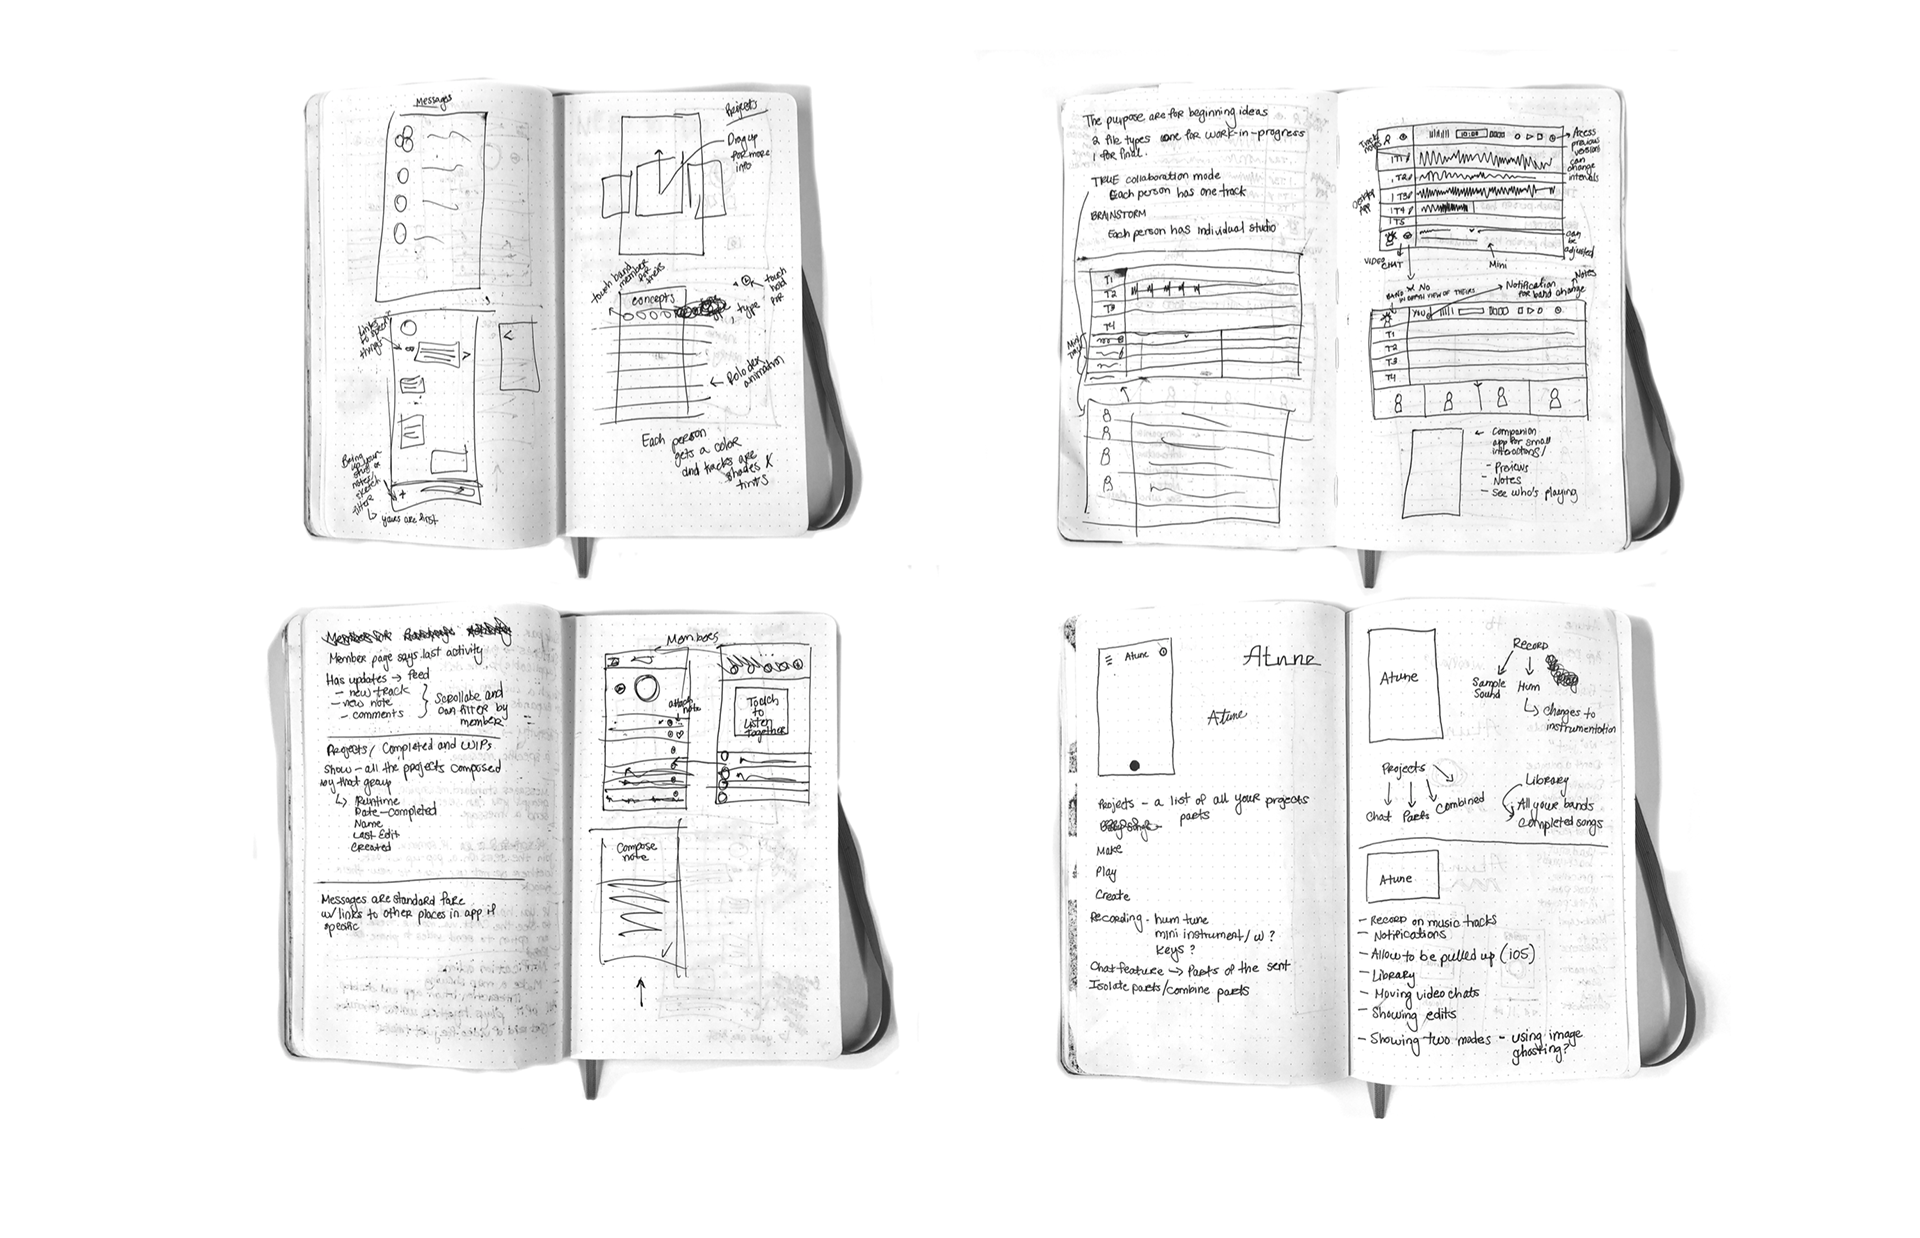 Messages
links
to specific
things
Bring
up your
stuff or
notes/
sketch
filter
yours are first
Projects
Drag up
for more
info
touch band
member
for
tracks
concepts
touch
hold
for
type
Rolodex
animation
Each person
gets a color
and tracks are
shades &
tints
The purpose are for beginning ideas
2 file types one for work-in-progress
1 for final.
TRUE collaboration mode
Each person has one track
BRAINSTORM
Each person has individual studio
T1
T2
T3
T4
Track
notes
Desktop
App
T1
T2
T3
T4
T5
Access
previous
versions
can
change
intervals
can
be
adjusted
VIDEO
CHAT
Mini
Notes
BAND
NO
IN DEPTH VIEW OF THEIRS
Notification
for band change
You
T1
T2
T3
T4
Companion
app for small
interactions/
- Previews
- Notes
- See who's playing
Member page says last activity
Has updates → feed
- new track
- new note
- comments
Scrollabe and
can filter by
member
Projects/ Completed and WIPs
Show - all the projects composed
by that group
Runtime
Date-completed
Name
Last Edit
Created
Messages are standard fare
w/ links to other places in app if
specific
Members
attach
note
Touch
to
Listen
Together
Compose
note
Atune
Atune
Atune
Projects - a list of all your projects
parts
Make
Play
Create
Recording - hum tune
mini instrument/ w?
keys?
Chat feature → Parts of the sent
Isolate parts/combine parts
Atune
RECORD
Sample
Sound
Hum
Changes to
instrumentation
Projects
Chat
Parts
Combined
Library
All your bands
completed songs
Atune
- Record on music tracks
- Notifications
- Allow to be pulled up (iOS)
- Library
- Moving video chats
- Showing edits
- Showing two modes - using image
ghosting?